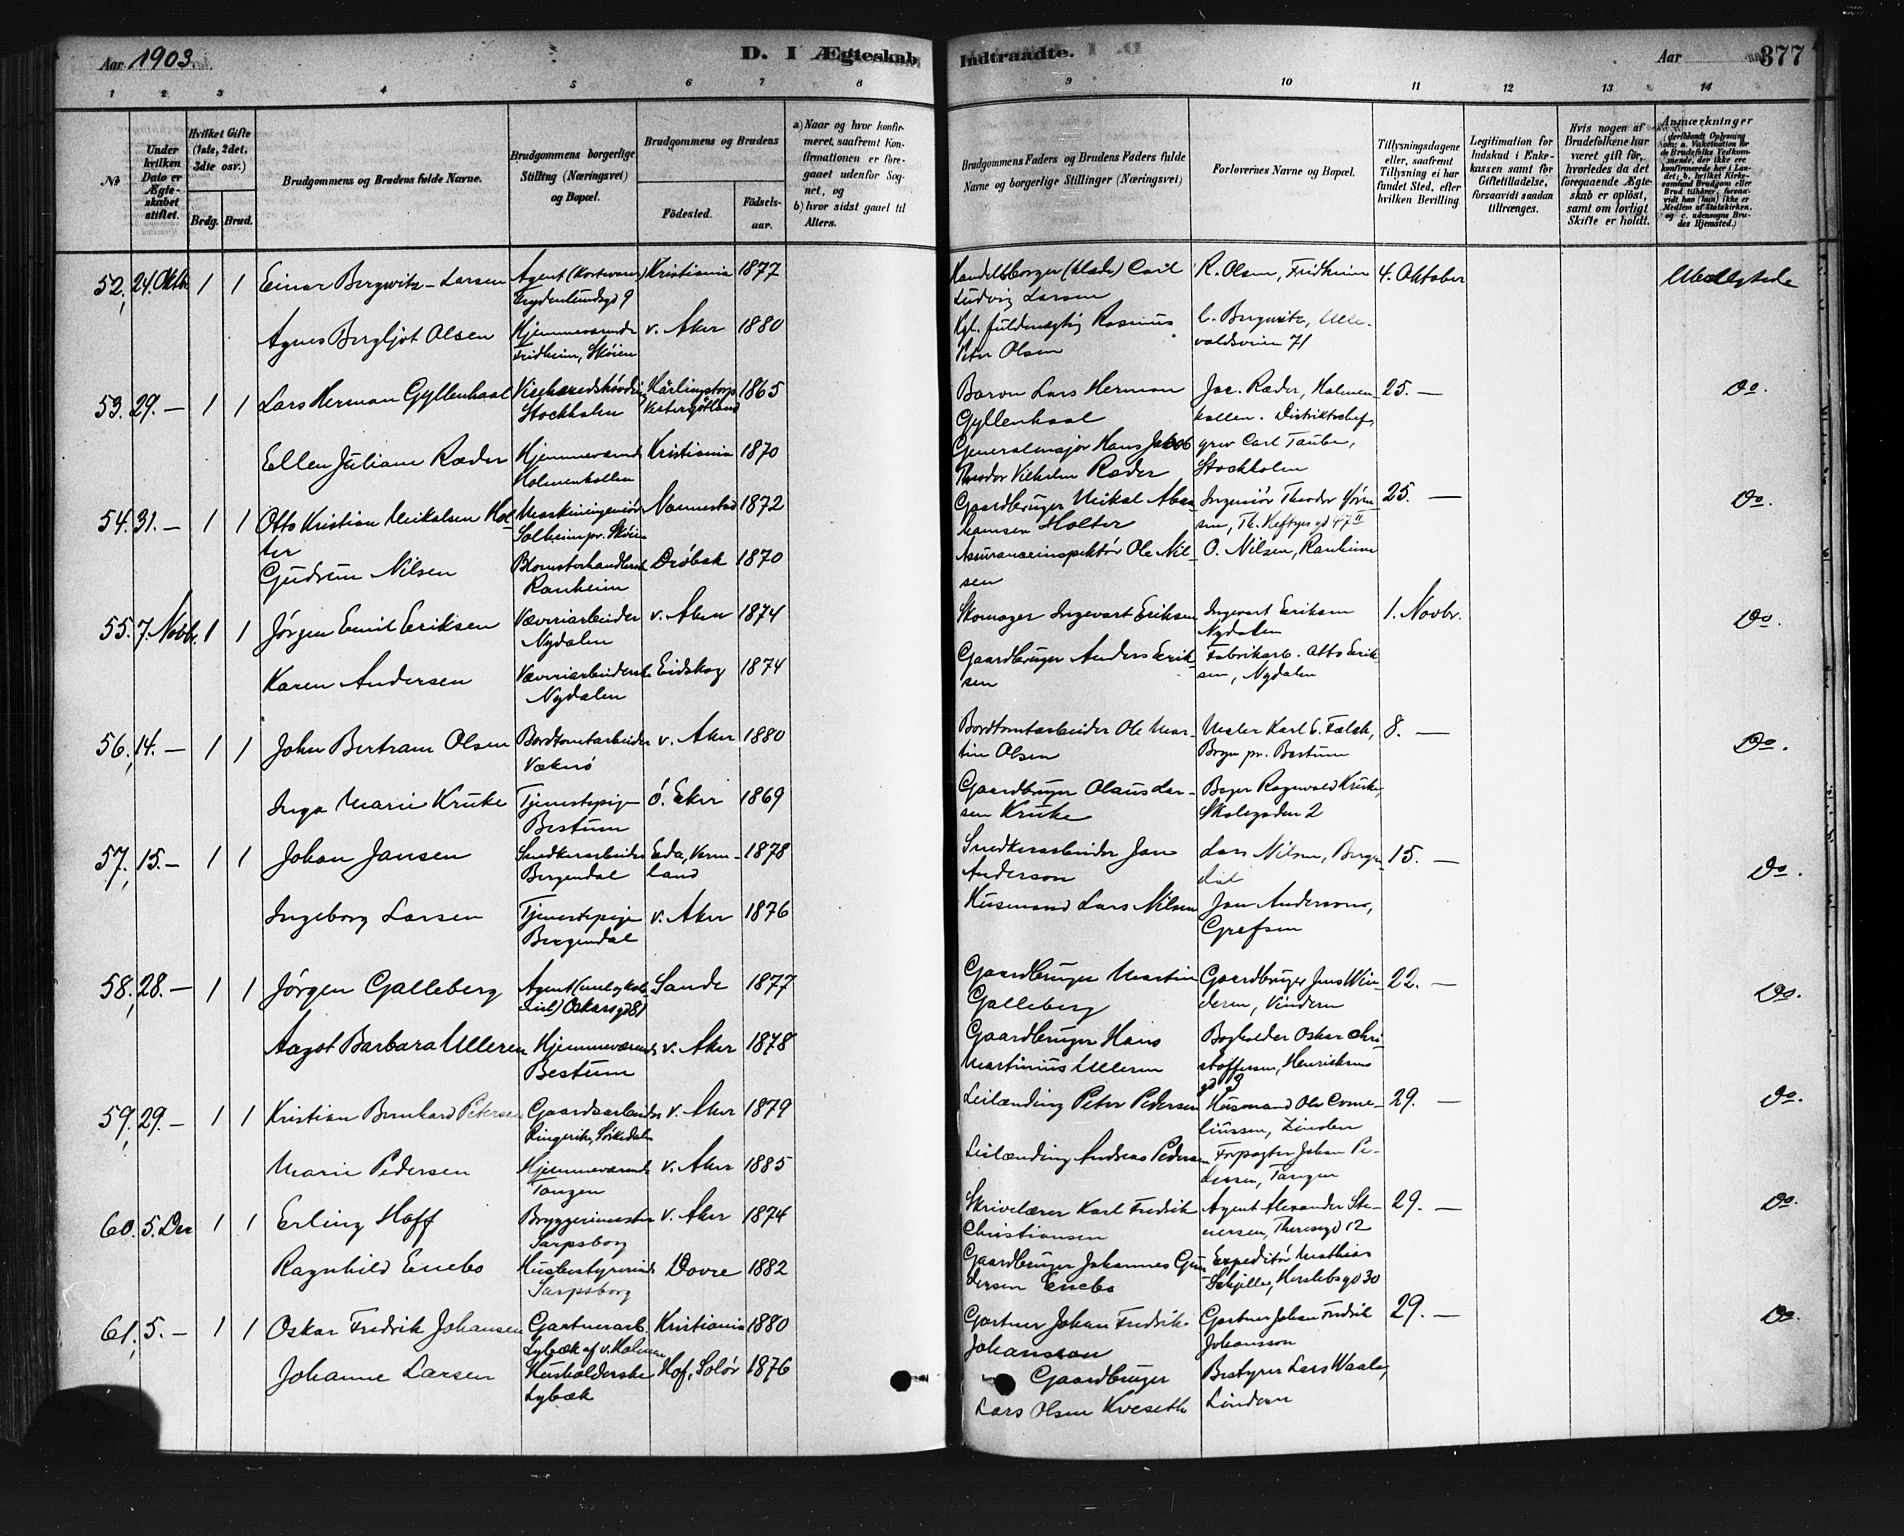 Aar 1903.
D. I Ægteskab
Indtraadte.
Aar
377
1 2 3 4 5 6 7 8
9 10 11 12 13 14
No
Under hvilken Dato er Ægteskabet stiftet.
Hvilket Gifte (1ste, 2det, 3die osv.)
Brdg. Brud.
Brudgommens og Brudens fulde Navne.
Brudgommens borgerlige Stilling (Næringsvei) og Bopæl.
Brudgommens og Brudens
Födested.
Födselsaar.
a) Naar og hvor konfirmeret, saafremt Konfirmationen er foregaaet udenfor Sognet, og
b) hvor sidst gaaet til Alters.
Brudgommens Faders og Brudens Faders fulde Navne og borgerlige Stillinger (Næringsvei)
Forlovernes Navne og Bopæl.
Tillysningsdagene eller, saafremt Tillysning ei har fundet Sted, efter hvilken Bevilling
Legitimation for Indskud i Enkekassen samt for Giftetilladelse, forsaavidt saadan tiltrænges.
Hvis nogen af Brudefolkene har været gift för, hvorledes da det foregaaende Ægteskab er oplöst, samt om lovligt Skifte er holdt.
Anmærkninger
52, 24. Oktbr 1 1 Einar Bergwitz-Larsen Agent (Kortevarer) Frydenlundsgd 9 Kristiania 1877
Handelsborger (klæde) Carl Ludvig Larsen R. Olsen, Fridheim 4. Oktober
Agnes Bergljot Olsen Hjemmeværende Fridheim, Skøien v. Aker 1880
Kgl. fuldmægtig Rasmus Peter Olsen C. Bergwitz, Ullevoldsveien 71
53. 29. — 1 1 Lars Herman Gyllenhaal Stockholm Vestergøtland 1865
Baron Lars Herman Gyllenhaal Jac. Ræder, Holmenkollen. Distriktschef, 25. — Do.
Ellen Juliane Ræder Hjemmeværende Holmenkollen Kristiania 1870
Generalmajor Hans Jakob Theodor Vilhelm Ræder grev Carl Taube, Stockholm
54. 31. — 1 1 Otto Kristian Mikalsen Holter Maskiningeniør Solheim pr. Skøien Nannestad 1872
Gaardbruger Mikal Abrahamsen Holter Ingeniør Theodor Th. Heftyes gd 47 II 25. — Do.
Gudrun Nilsen Blomsterhandlerske Ranheim Drøbak 1870
Assuranceinspektør Ole Nilsen O. Nilsen, Ranheim
55. 7. Novbr. 1 1 Jørgen Emil Eriksen Væveriarbeider Nydalen v. Aker 1874
Skomager Ingevart Eriksen Ingevart Eriksen Nydalen 1. Novbr. Do.
Karen Andersen Væveriarbeiderske Nydalen Eidskog 1874
Gaardbruger Anders Eriksen Fabrikarb. Otto Eriksen, Nydalen
56, 14. — 1 1 John Bertram Olsen Bordtomtarbeider Vækerø v. Aker 1880
Bordtomtarbeider Ole Martin Olsen Maler Karl C. Falck, pr. Bestum 8. — Do.
Inga Marie Kruke Tjenestepige Bestum Ø. Eker 1869
Gaardbruger Olaus Larsen Kruke Bager Ragnvald Kruke, Skolegaden 2
57, 15. — 1 1 Johan Jansen Snedkerarbeider Bergendal Eda, Vermland 1878
Snedkerarbeider Jan Anderson Lars Nilsen, Bergendal 15. — Do.
Ingeborg Larsen Tjenestepige Bergendal v. Aker 1876
Husmand Lars Nilsen Jan Anderson, Grefsen
58, 28. — 1 1 Jørgen Galleberg Agent Oskarsgd 81 Sande 1877
Gaardbruger Martin Galleberg Gaardbruger Jens Winderen, Vinderen 22. — Do.
Aagot Barbara Ulleren Hjemmeværende Bestum v. Aker 1878
Gaardbruger Hans Martinius Ulleren Bogholder Oskar Christoffersen, Henriksens gd 3
59, 29. — 1 1 Kristian Bernhard Petersen Gaardsarbeider Ringerike, Sørkedalen v. Aker 1879
Leilænding Peter Pedersen Husmand Ole Corneliussen, Zinober 29. — Do.
Marie Pedersen Hjemmeværende Tangen v. Aker 1885
Leilænding Andreas Pedersen Forpagter Johan Pedersen, Tangen
60. 5. Der 1 1 Erling Hoff Bryggerimester Sarpsborg v. Aker 1874
Skrivelærer Karl Fredrik Christiansen Agent Alexander Steenersen, Theresegd 12 29. — Do.
Ragnhild Enebo Husbestyrerinde Sarpsborg Dovre 1882
Gaardbruger Johannes Gundersen Enebo Expeditør Mathias Herslebsgd 30
61, 5. — 1 1 Oskar Fredrik Johansen Gartnerarb. Lybæk af v. Holmen Kristiania 1880
Gartner Johan Fredrik Johansson Gartner Johan Fredrik Johansson 29. — Do.
Johanne Larsen Husholderske Lybæk Hof, Solør 1876
Gaardbruger Lars Olsen Kveseth Bestyrer Lars Waaler, Lindern